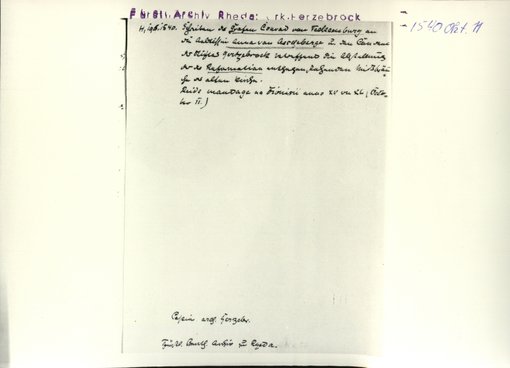 Fürstl. Archiv Rheda: rk.Herzebrock
1540 Okt. 11
1540. Schreiben des Grafen Conrad von Tecklenburg an
die Äbtissin Anna van Ascheberge u. den Convent
des Stiftes Herzebrock betreffend die Abstellung
der der Reformation entgegen
der alten Kirche.
Rheda mandage na Dionisii anno XV un XL (Octo-
ber 11.)
Copia arch. Herzebr.
Fürstl. Benth. Archiv zu Rheda.